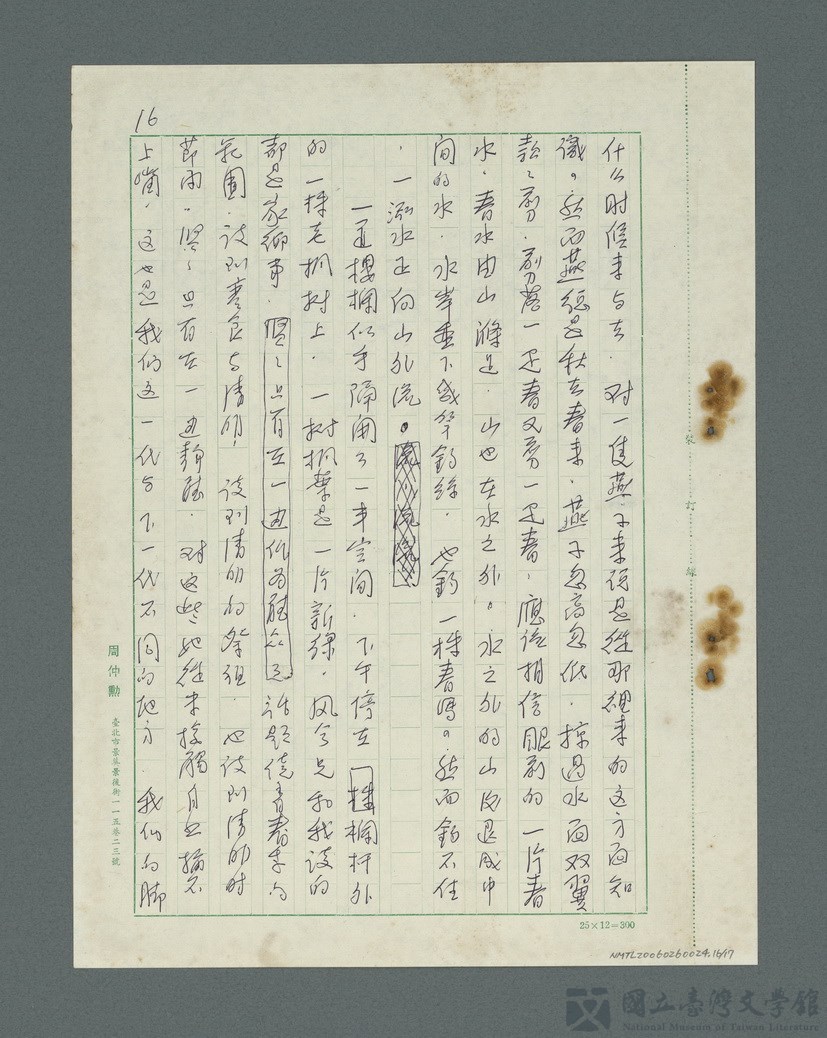 16
什么时候来与去．对一隻燕子来说是從那裡来的这方面知
識。然而燕總是秋去春来．燕子忽高忽低．掠過水面双翼
款款剪．剪落一足春又剪一足春．應該相信眼前的一片春
水．春水由山滌足．山也在水之外。水之外的山改退成中
间的水．水岸垂下幾竿釣絲．也釣一株春嗎。然而釣不住
．一泓水正向山外流。
一道樓欄似乎隔開了一半空间．下午停在一株欄杆外
的一株老桐树上．一树桐葉是一片新绿．风令兄和我谈的
都是家鄉事．坚坚只有在一边作為聽众
话题繞青春季的
花圃．谈到寒食与清明，谈到清明的祭祖．也谈到清明时
節雨．坚坚只有在一边静聽．对这些她從未接觸
自然插不
上嘴．这也是我们这一代与下一代不同的地方．我们的脚
周仲勳
臺北市景美景後街一一五巷二三號
裝訂線
25×12=300
NMTL20060260024.16/17
國立臺灣文學館
National Museum of Taiwan Literature